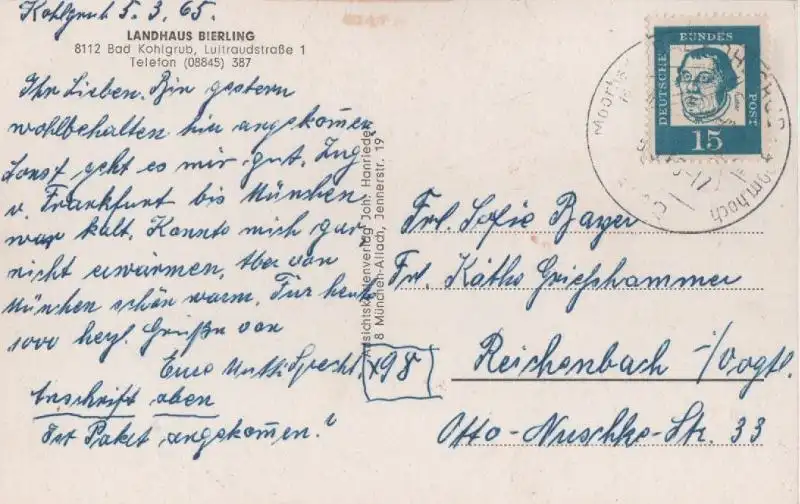 Kohlgrub 5. 3. 65.
LANDHAUS BIERLING
8112 Bad Kohlgrub, Luitraudstraße 1
Telefon (08845) 387
Ihr Lieben. Bin gestern
wohlbehalten hier angekommen
sonst geht es mir gut. Zug
v. Frankfurt bis München
war kalt. Konnte mich gar
nicht erwärmen. Aber von
München schön warm. Für heute
1000 herzl. Grüße von
Eure
Anschrift oben
Ist Paket angekommen?
Ansichtskartenverlag Joh. Hanrieder
8 München-Allach, Jennerstr. 19
DEUTSCHE BUNDES POST
15
Frl. Sofie Bayer
Frl. Käthe Grieshammer
x98
Reichenbach i/Vogtl.
Otto-Nuschke-Str. 33